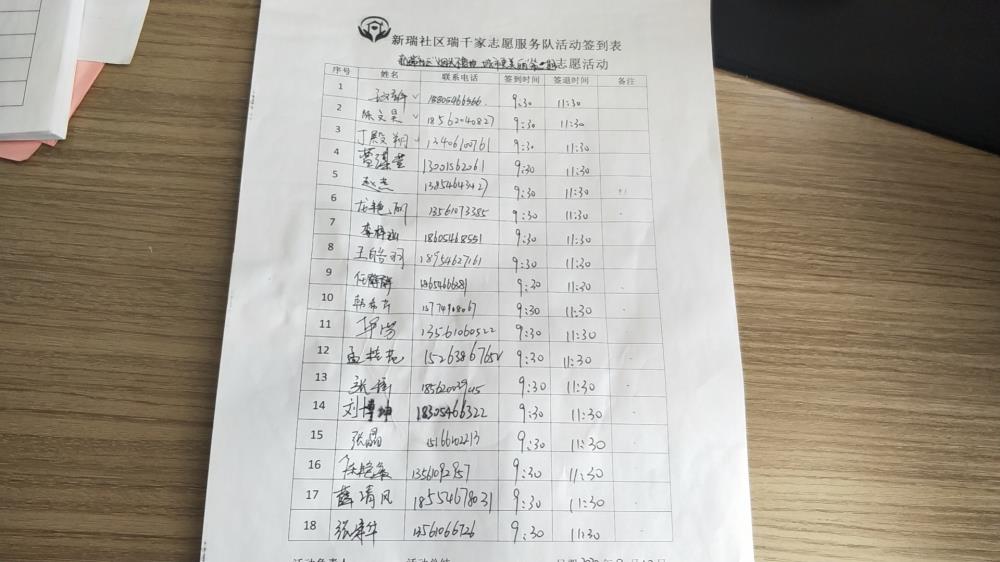 新瑞社区瑞千家志愿服务队活动签到表
志愿活动
序号 姓名 联系电话 签到时间 签退时间 备注
1 18805466566 9:30 11:30
2 陈文昊 18562040827 9:30 11:30
3 丁殿翔 13406100761 9:30 11:30
4 13001562061 9:30 11:30
5 赵杰 13854643427 9:30 11:30
6 龙艳丽 13561073385 9:30 11:30
7 18605468551 9:30 11:30
8 王皓羽 18954627161 9:30 11:30
9 任群群 9:30 11:30
10 韩希吉 9:30 11:30
11 13561060522 9:30 11:30
12 孟桂苑 9:30 11:30
13 9:30 11:30
14 刘博坤 18305466322 9:30 11:30
15 张晶 15166102213 9:30 11:30
16 9:30 11:30
17 薛清风 18554678031 9:30 11:30
18 13561066726 9:30 11:30